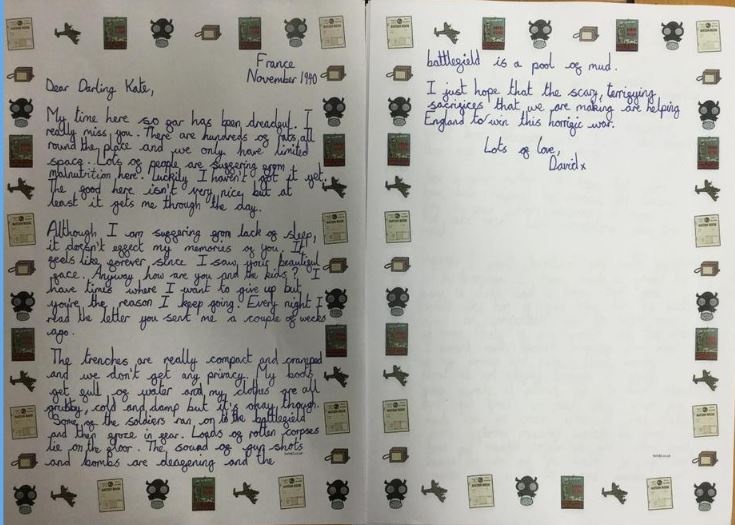 France
November 1940
Dear Darling Kate,
My time here so far has been dreadful. I
really miss you. There are hundreds of rats all
round the place and we only have limited
space. Lots of people are suffering from
malnutrition here. Luckily I haven't got it yet.
The food here isn't very nice but at
least it gets me through the day.
Although I am suffering from lack of sleep,
it doesn't effect my memories of you. It
feels like forever since I saw your beautiful
face. Anyway how are you and the kids? I
have times where I want to give up but
you're the reason I keep going. Every night I
read the letter you sent me a couple of weeks
ago.
The trenches are really compact and cramped
and we don't get any privacy. My boots
get full of water and my clothes are all
grubby, cold and damp but it's okay though.
Some of the soldiers ran on to the battlefield
and then froze in fear. Loads of rotten corpses
lie on the floor. The sound of gun shots
and bombs are deafening and the
battlefield is a pool of mud.
I just hope that the scary, terrifying
sacrifices that we are making are helping
England to win this horrific war.
Lots of love,
David x